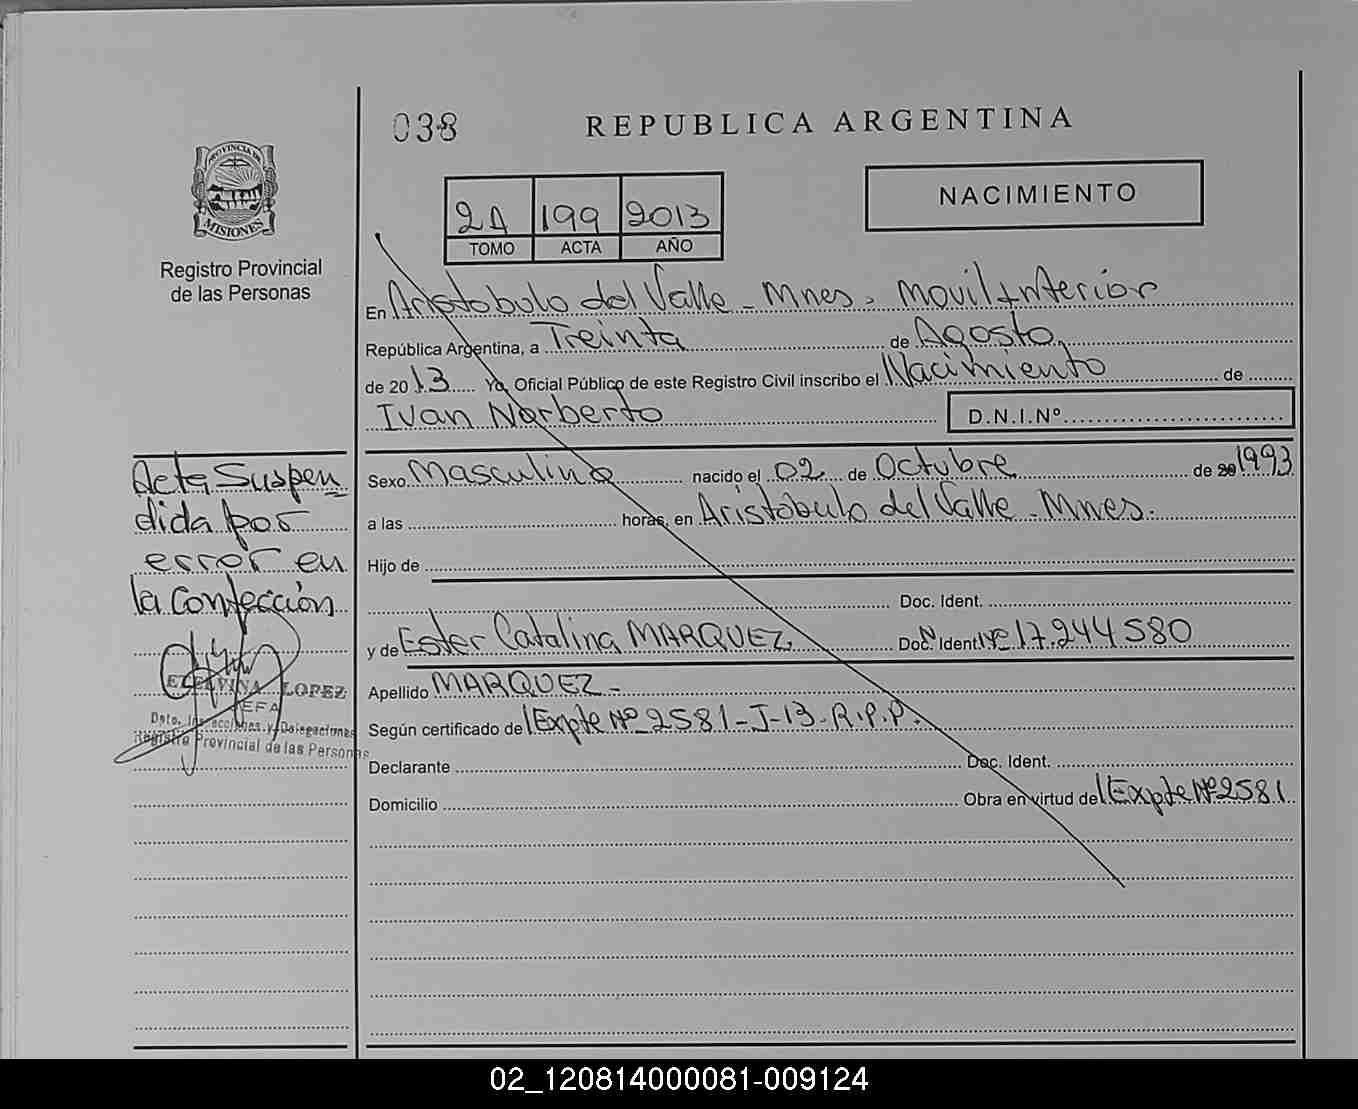 038
REPUBLICA ARGENTINA
PROVINCIA DE
MISIONES
Registro Provincial
de las Personas
2A 199 2013
TOMO ACTA AÑO
NACIMIENTO
En Aristobulo del Valle - Mnes. Movil Interior
República Argentina, a Treinta de Agosto
de 2013 Yo, Oficial Público de este Registro Civil inscribo el Nacimiento de
Ivan Norberto D.N.I.Nº
Sexo Masculino nacido el 02 de Octubre de 20 1993
a las horas, en Aristobulo del Valle - Mnes.
Hijo de
Doc. Ident.
y de Ester Catalina MARQUEZ Doc. Ident. Nº 17.244.580
Apellido MARQUEZ -
Según certificado de Expte Nº 2581-J-13-R.P.P.
Declarante Doc. Ident.
Domicilio Obra en virtud de Expte Nº 2581
Acta Suspen
dida por
error en
la confección
LOPEZ
JEFA
Dpto. Inspecciones y Delegaciones
Registro Provincial de las Personas
02_120814000081-009124